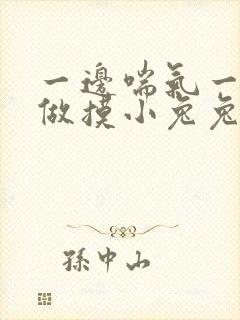 一邊喘氣一
做摸小兔兔
孫中山